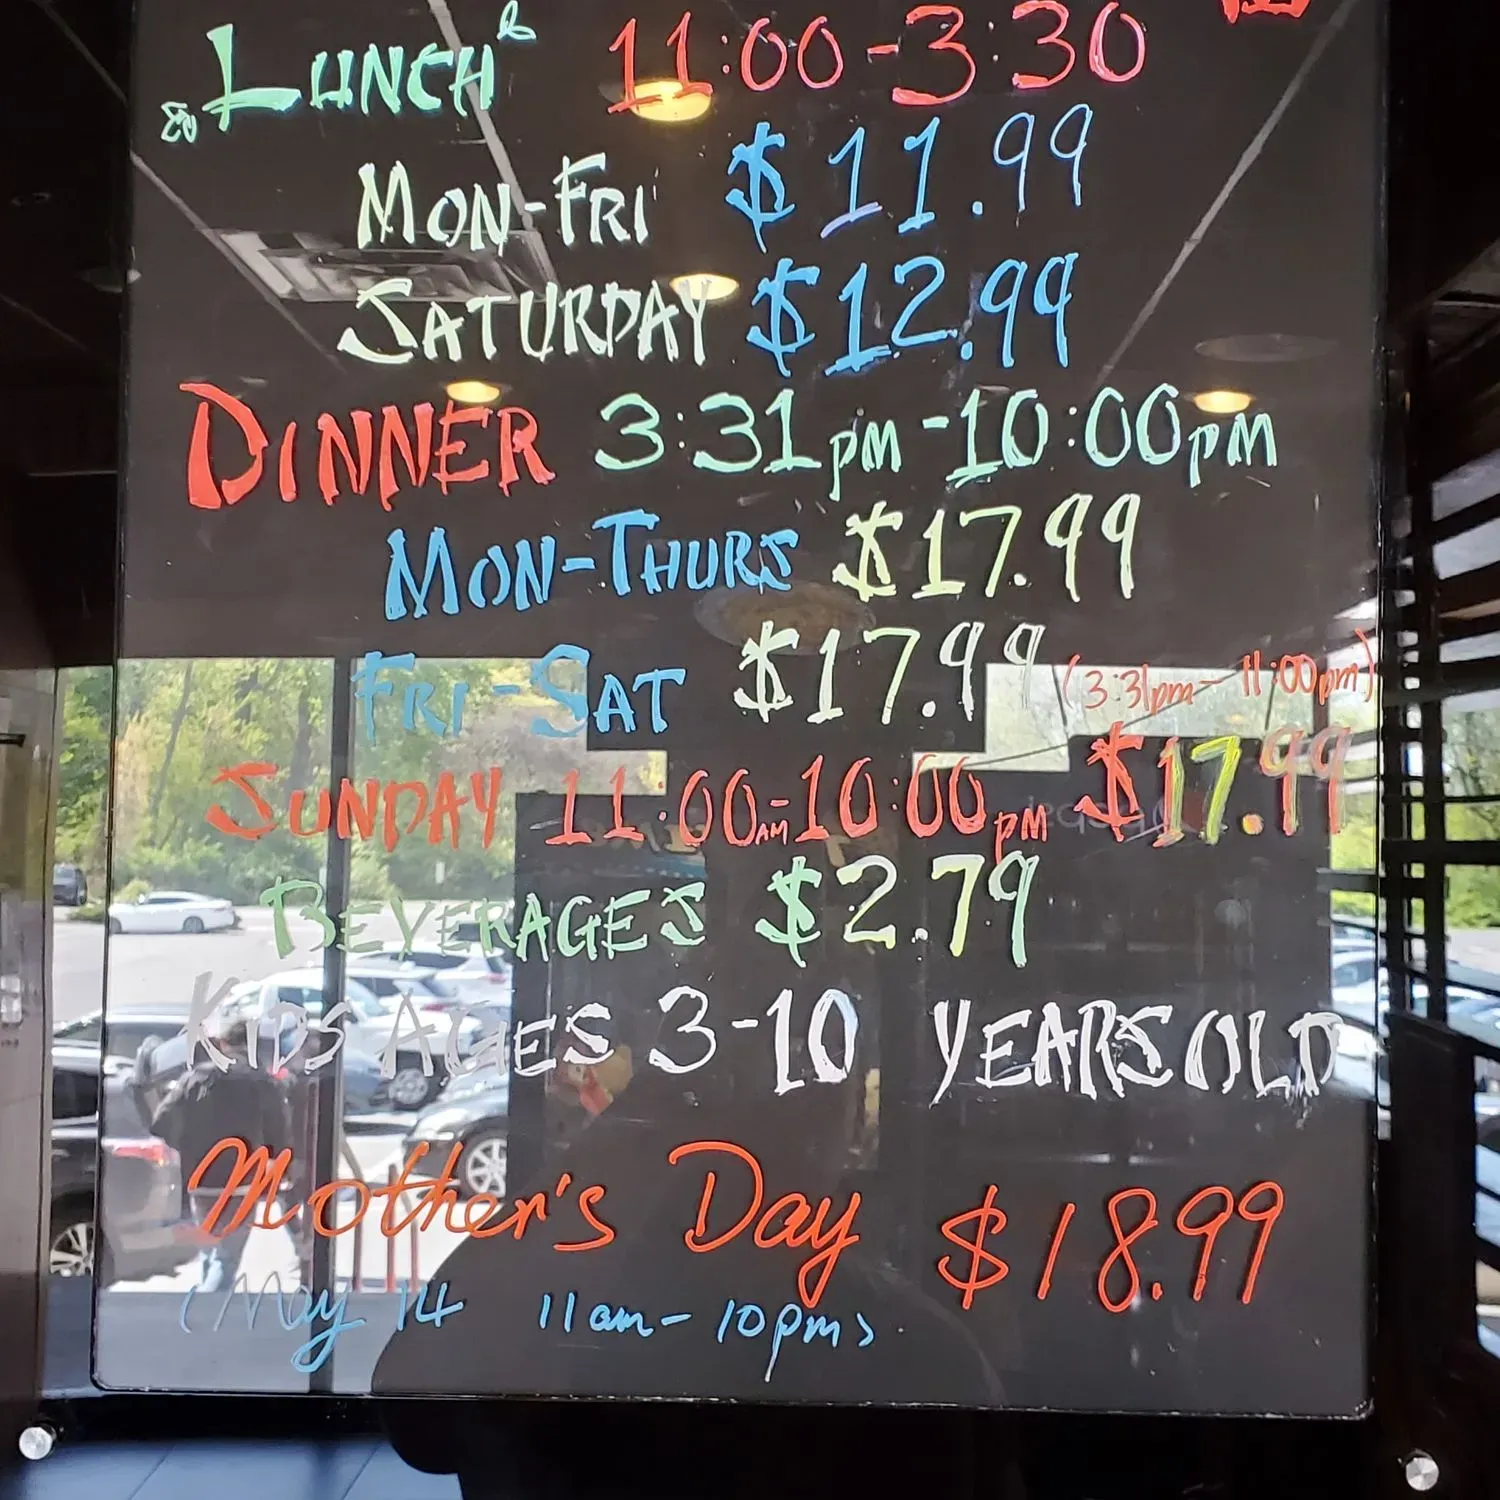 LUNCH 11:00-3:30
MON-FRI $11.99
SATURDAY $12.99
DINNER 3:31pm-10:00pm
MON-THURS $17.99
FRI-SAT $17.99 (3:31pm-11:00pm)
SUNDAY 11:00AM-10:00pm $17.99
BEVERAGES $2.79
KIDS AGES 3-10 YEARS OLD
Mother's Day $18.99
(May 14 11am-10pm)